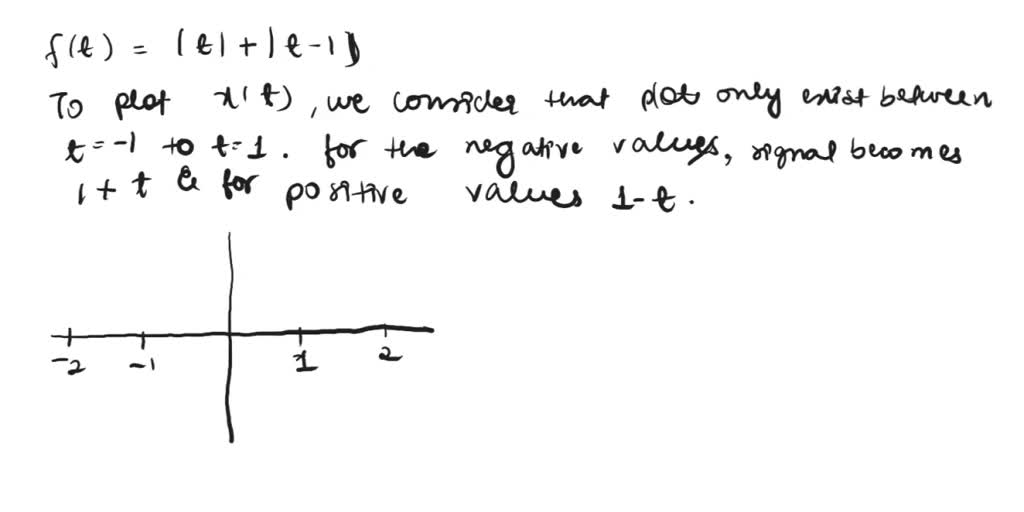 f(t) = |t| + |t-1|
To plot x(t), we consider that plot only exist between
t=-1 to t=1. for the negative values, signal becomes
1+t & for positive values 1-t.
-2 -1 1 2